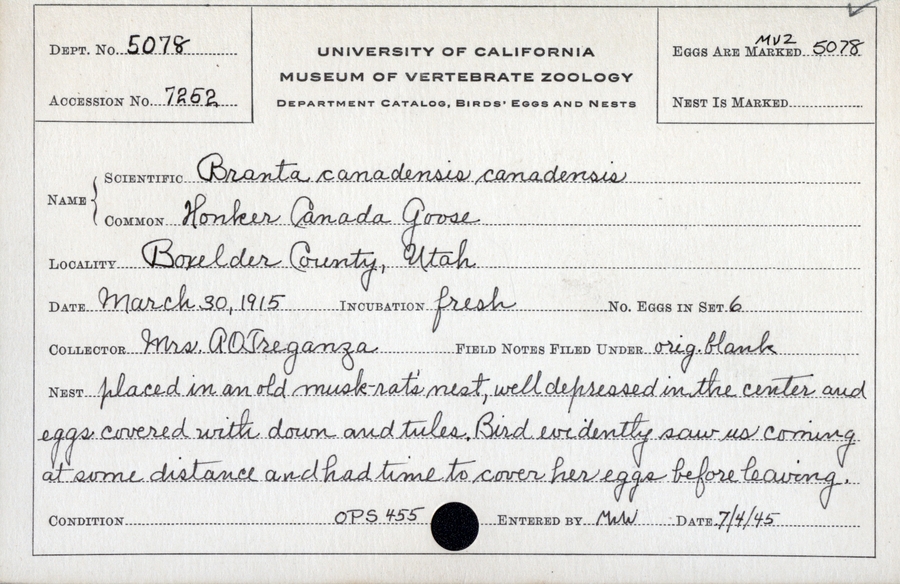 Dept. No. 5078
Accession No. 7252
UNIVERSITY OF CALIFORNIA
MUSEUM OF VERTEBRATE ZOOLOGY
Department Catalog, Birds' Eggs and Nests
MVZ
Eggs Are Marked 5078
Nest Is Marked
Name
Scientific Branta canadensis canadensis
Common Honker Canada Goose
Locality Boxelder County, Utah
Date March 30, 1915 Incubation fresh No. Eggs in Set 6
Collector Mrs. A O Treganza Field Notes Filed Under orig. blank
Nest placed in an old musk-rat's nest, well depressed in the center and
eggs covered with down and tules. Bird evidently saw us coming
at some distance and had time to cover her eggs before leaving.
Condition OPS 455 Entered by MWW Date 7/4/45